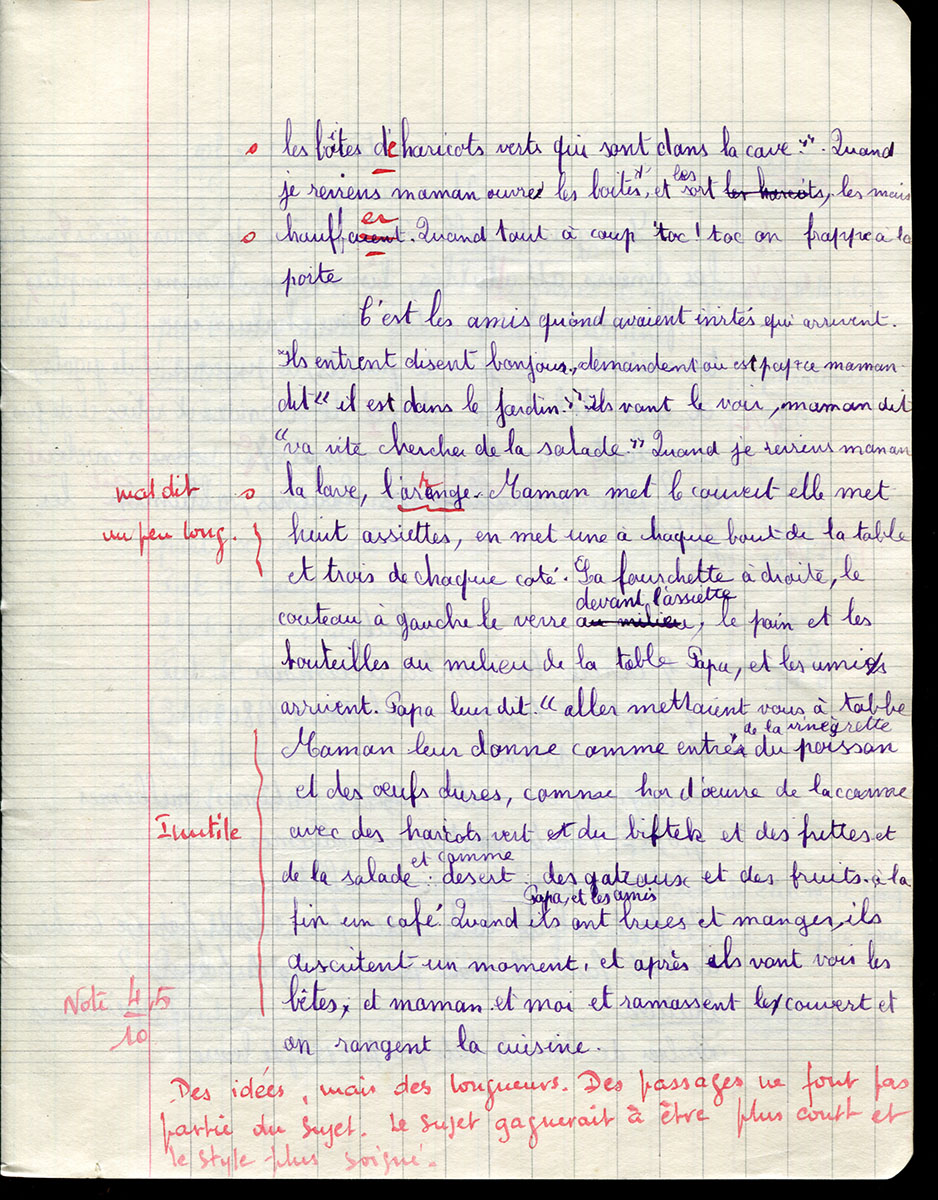 les boîtes de haricots verts qui sont dans la cave." Quand
je reviens maman ouvre les boites, et les sort les haricots, les mais
er
chauffaient. Quand tout à coup toc! toc on frappe à la
porte
C'est les amis quond avaient invités qui arrivent.
Ils entrent disent bonjour, demandent ou est papa maman
dit "il est dans le jardin." Ils vont le voir, maman dit
"va vite chercher de la salade." Quand je reviens maman
mal dit la lave, l'arrange. Maman met le couvert elle met
un peu long. huit assiettes, en met une à chaque bout de la table
et trois de chaque coté. La fourchette à droite, le
devant l'assiette
couteau à gauche le verre au milieu, le pain et les
bouteilles au milieu de la table Papa, et les amis
arrivent. Papa leur dit. "aller mettaient vous à table
de la vinègrette
Maman leur donne comme entrée du poisson
et des oeufs dures, comme hor d'oeuvre de la
Inutile avec des haricots vert et du biftek et des frittes et
et comme
de la salade desert des gateaux et des fruits. à la
Papa, et les amis
fin un café. Quand ils ont bues et manger, ils
discutent un moment, et après ils vont voir les
Note 4,5 bêtes, et maman et moi et ramassent le couvert et
10
on rangent la cuisine.
Des idées, mais des longueurs. Des passages ne font pas
partie du sujet. Le sujet gagnerait à être plus court et
le style plus soigné.